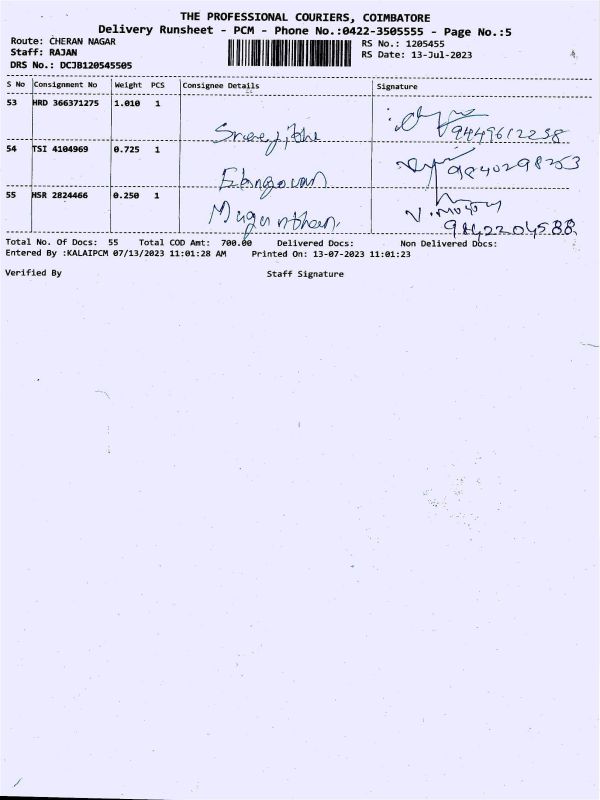 THE PROFESSIONAL COURIERS, COIMBATORE
Delivery Runsheet - PCM - Phone No.:0422-3505555 - Page No.:5
Route: CHERAN NAGAR
RS No.: 1205455
Staff: RAJAN
RS Date: 13-Jul-2023
DRS No.: DCJB120545505
S No Consignment No Weight PCS Consignee Details Signature
53 HRD 366371275 1.010 1
9449612238
54 TSI 4104969 0.725 1
Elangovan 9840298253
55 HSR 2824466 0.250 1
Mugunthan. 9842204588
Total No. Of Docs: 55 Total COD Amt: 700.00 Delivered Docs: Non Delivered Docs:
Entered By :KALAIPCM 07/13/2023 11:01:28 AM Printed On: 13-07-2023 11:01:23
Verified By Staff Signature